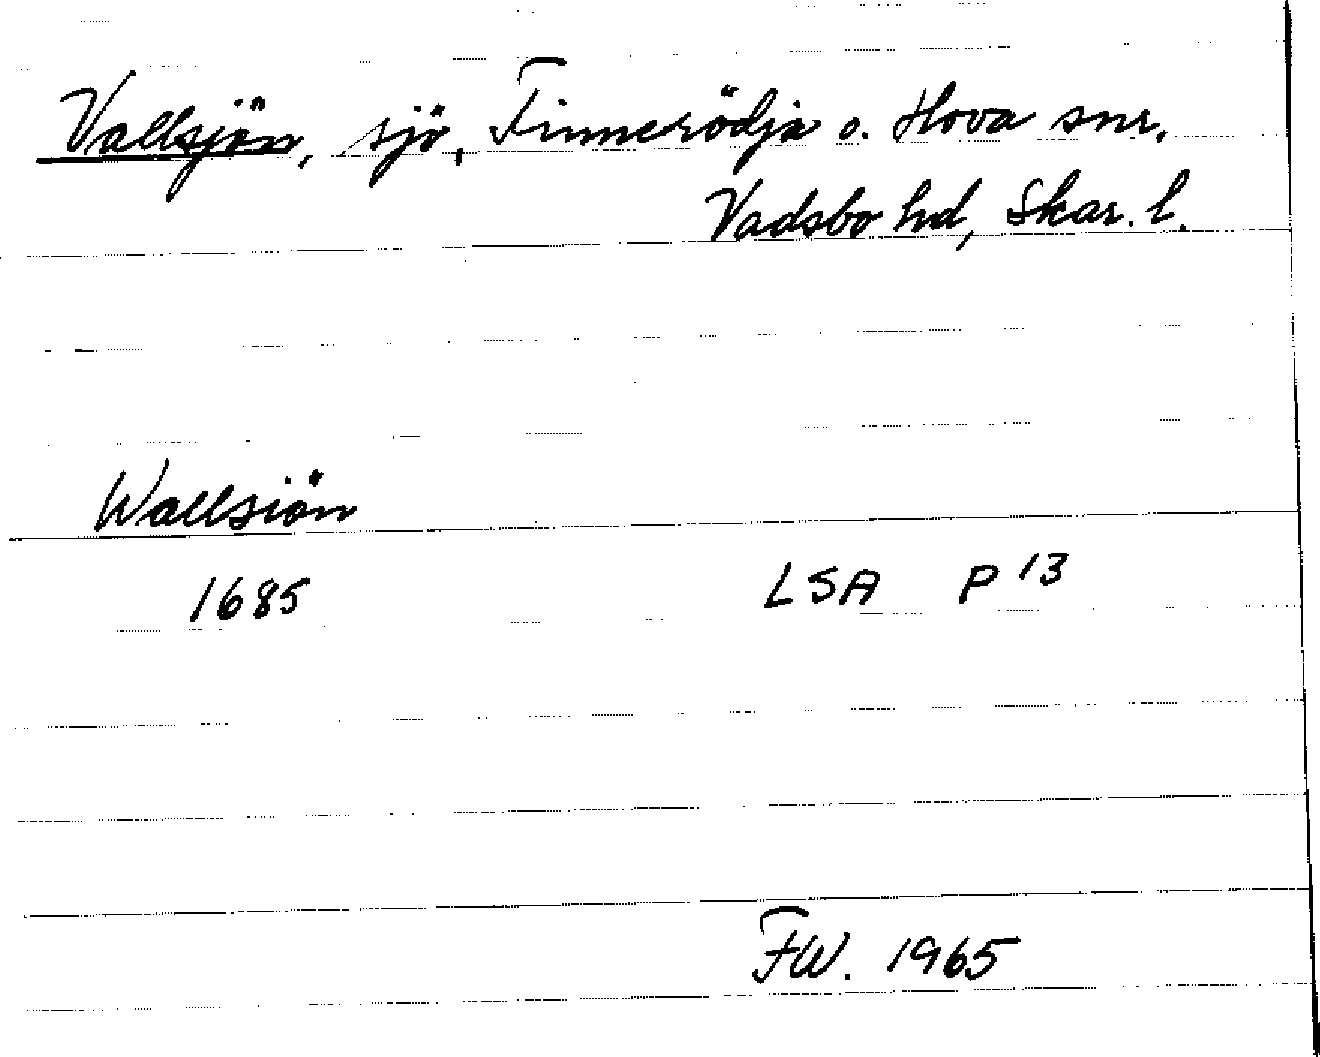 Vallsjön, sjö, Finnerödja o. Hova snr.
Vadsbo hd, Skar. l.
Wallsiön
1685 LSA P 13
FW. 1965